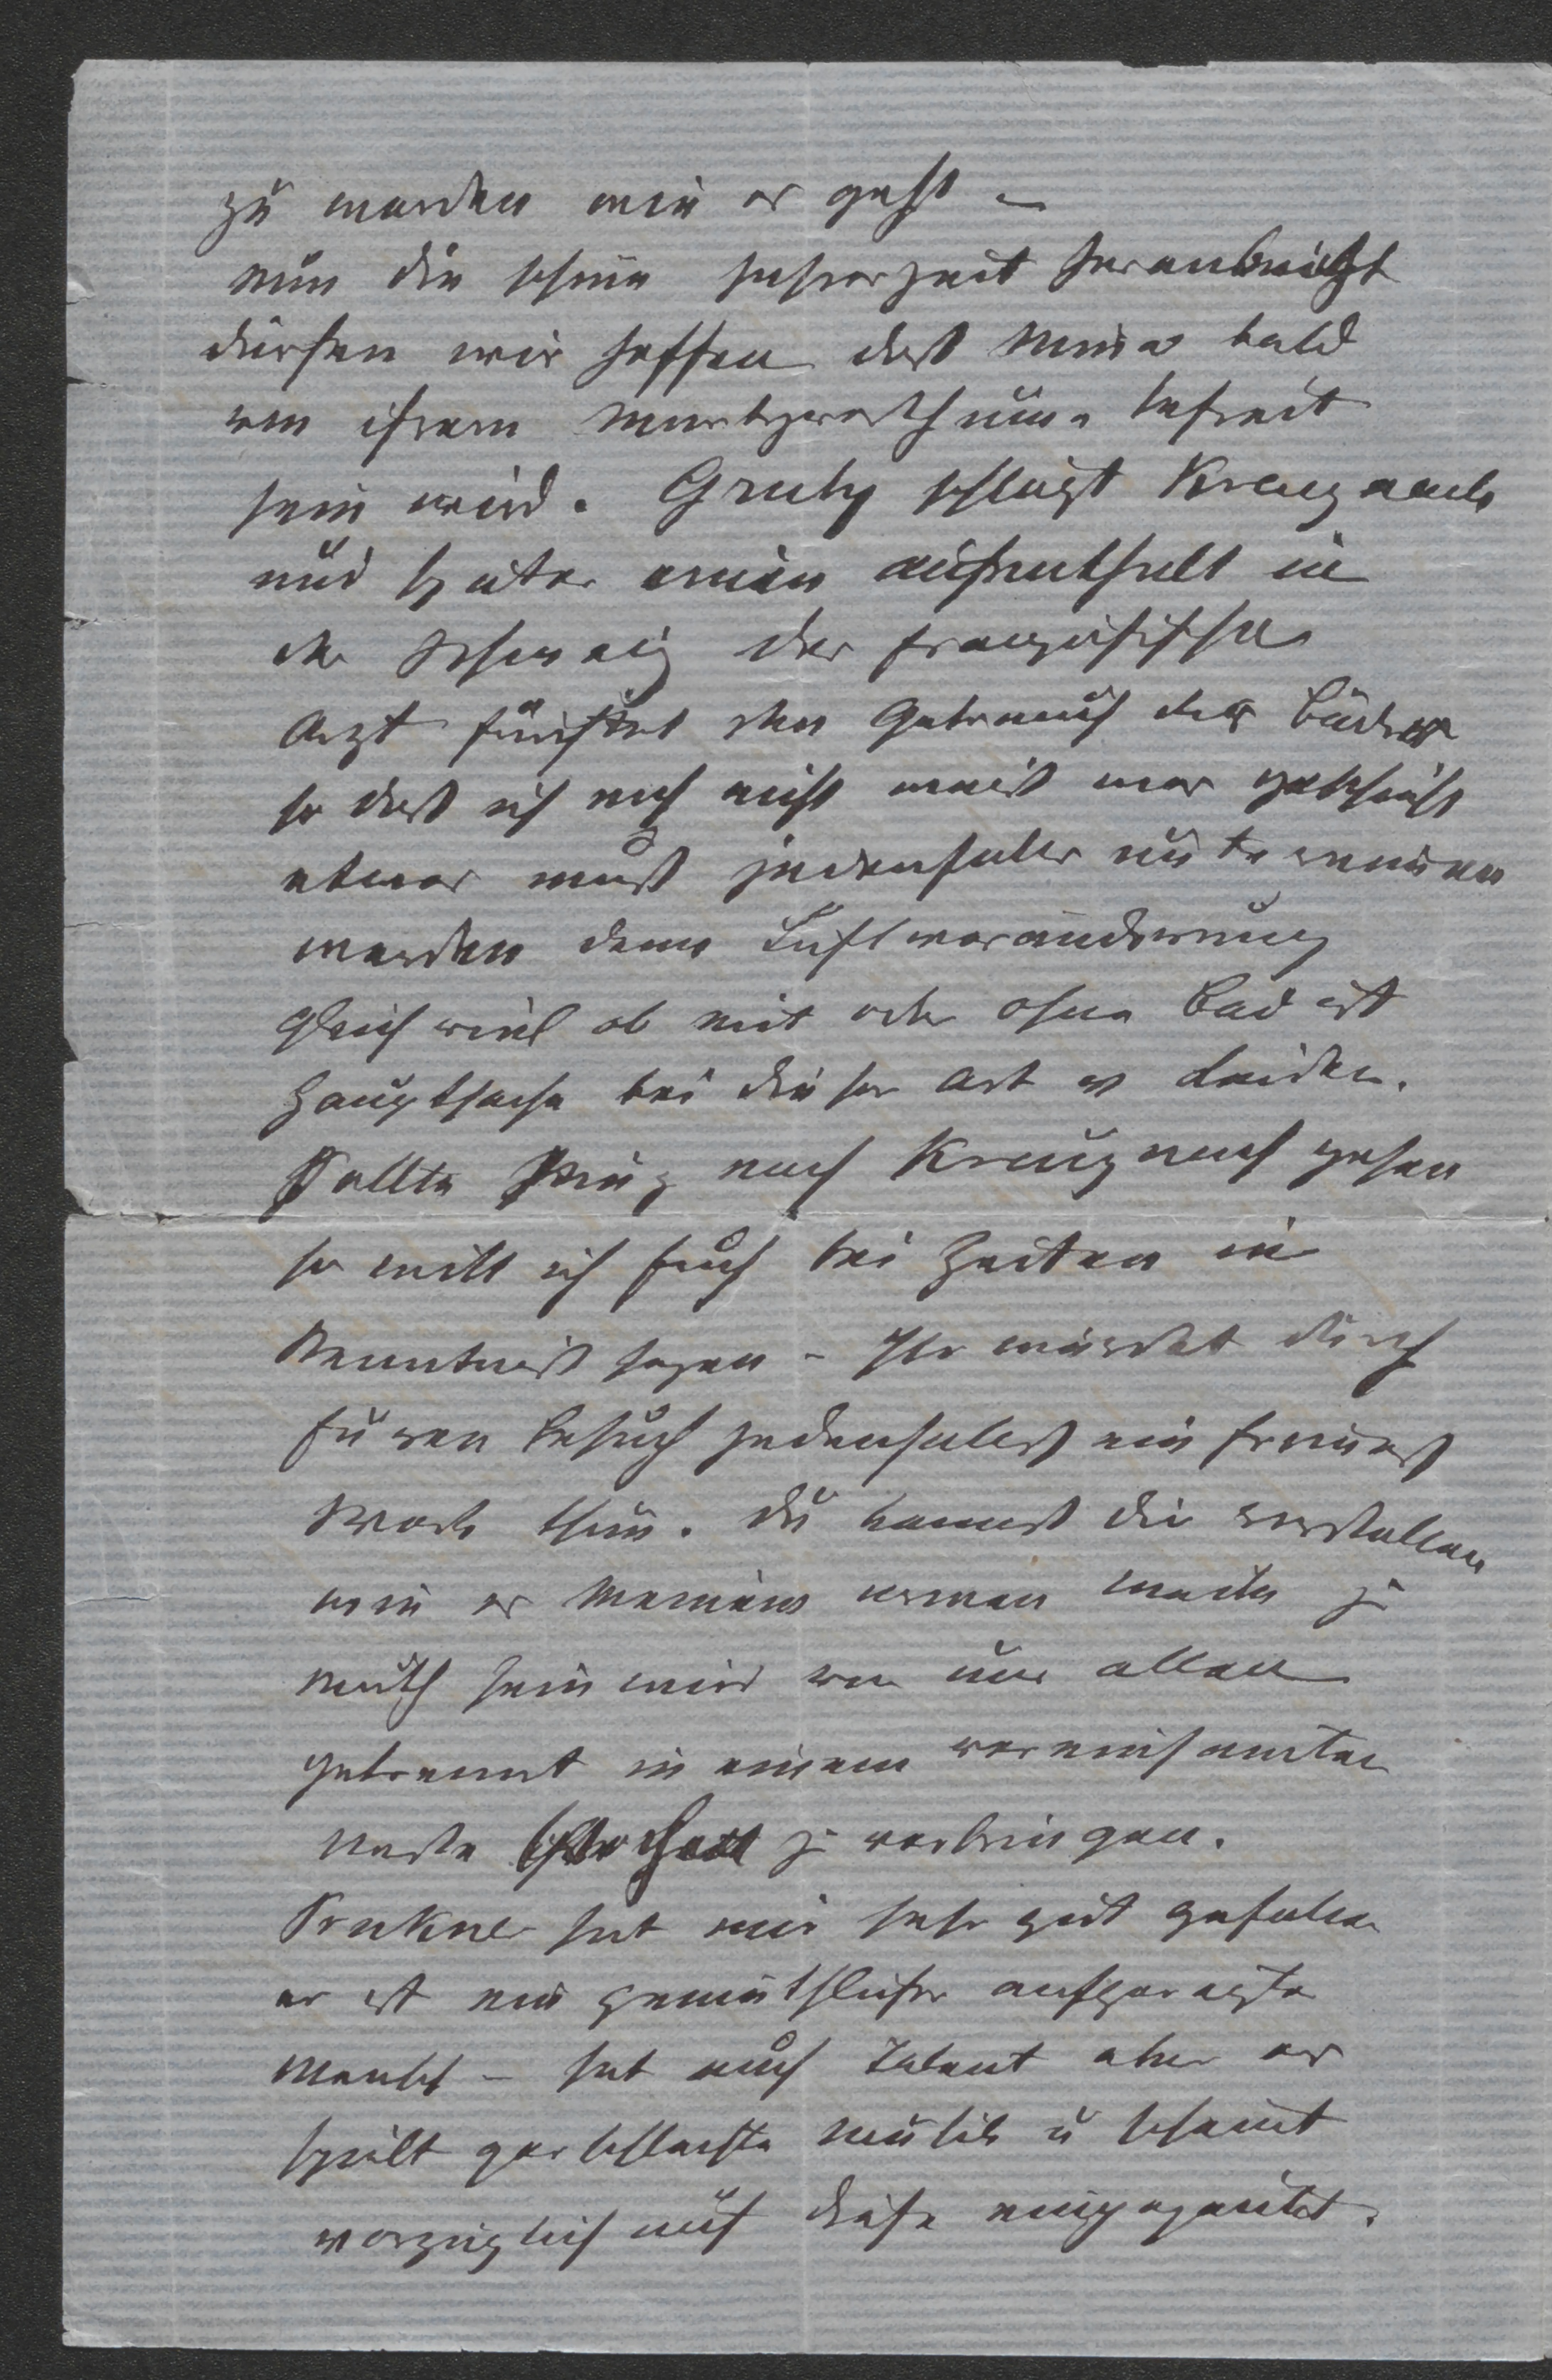 zu werden wie es geht –
nun die schöne Jahreszeit heranbricht
dürfen wir hoffen daß Minna bald
von ihrem befreit
sein wird. Gruby schlägt Kreuznach
und später einen aufenthalt in
der Schweiz der französische
Arzt fürchtet den Gebrauch der Bäder
so daß ich noch nicht weiß was geschieht
etwas muß jedenfalls unternommen
werden denn Luftveränderung
gleich viel ob mit oder ohne Bad ist
Hauptsache bei dieser Art v Leiden.
Sollte nach Kreuznach gehen
so will ich Euch bei Zeiten in
Kenntniß setzen – Ihr würdet durch
Euren Besuch jedenfalls ein frommes
Werk thun. Du kannst dir vorstellen
wie es armen zu
Muth sein wird von uns allen
getrennt in einem vereinsamten
Neste Wochen zu verbringen.
Prukner hat mir sehr gut gefallen
er ist ein gemüthlicher aufgeregter
Mensch – hat auch Talent aber er
spielt gar schlechte Musik u scheint
vorzüglich auf diese